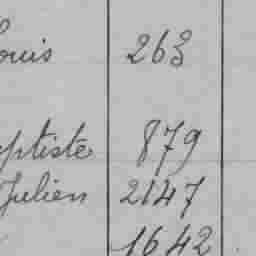 ouis 263
ptiste 879
Julien 2147
1642